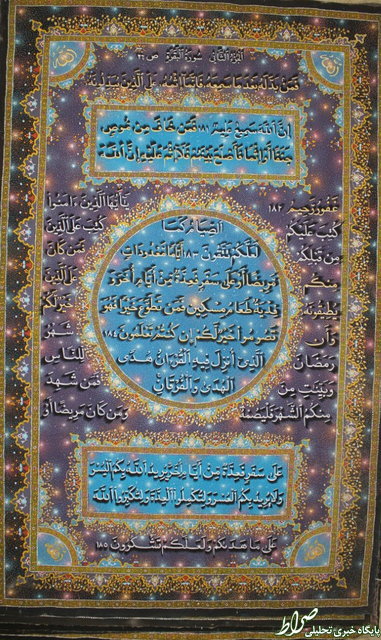 الجزء الثانی سورة البقرة
فَمَنۢ بَدَّلَهُ بَعْدَ مَا سَمِعَهُ فَإِنَّمَا إِثْمُهُ عَلَى الَّذِينَ يُبَدِّلُونَهُ
إِنَّ اللَّهَ سَمِيعٌ عَلِيمٌ ١٨١ فَمَنْ خَافَ مِن مُّوصٍ
جَنَفًا أَوْ إِثْمًا فَأَصْلَحَ بَيْنَهُمْ فَلَا إِثْمَ عَلَيْهِ إِنَّ اللَّهَ
غَفُورٌ رَّحِيمٌ ١٨٢ يَا أَيُّهَا الَّذِينَ آمَنُوا
كُتِبَ عَلَيْكُمُ الصِّيَامُ كَمَا كُتِبَ عَلَى الَّذِينَ
مِن قَبْلِكُمْ لَعَلَّكُمْ تَتَّقُونَ ١٨٣ أَيَّامًا مَّعْدُودَاتٍ فَمَن كَانَ
مِنكُم مَّرِيضًا أَوْ عَلَىٰ سَفَرٍ فَعِدَّةٌ مِّنْ أَيَّامٍ أُخَرَ وَعَلَى الَّذِينَ
يُطِيقُونَهُ فِدْيَةٌ طَعَامُ مِسْكِينٍ فَمَن تَطَوَّعَ خَيْرًا فَهُوَ خَيْرٌ لَّكُمْ
وَأَن تَصُومُوا خَيْرٌ لَّكُمْ إِن كُنتُمْ تَعْلَمُونَ ١٨٤ شَهْرُ
رَمَضَانَ الَّذِي أُنزِلَ فِيهِ الْقُرْآنُ هُدًى لِّلنَّاسِ
وَبَيِّنَاتٍ مِّنَ الْهُدَىٰ وَالْفُرْقَانِ فَمَن شَهِدَ
مِنكُمُ الشَّهْرَ فَلْيَصُمْهُ وَمَن كَانَ مَرِيضًا أَوْ
عَلَىٰ سَفَرٍ فَعِدَّةٌ مِّنْ أَيَّامٍ أُخَرَ يُرِيدُ اللَّهُ بِكُمُ الْيُسْرَ
وَلَا يُرِيدُ بِكُمُ الْعُسْرَ وَلِتُكْمِلُوا الْعِدَّةَ وَلِتُكَبِّرُوا اللَّهَ
عَلَىٰ مَا هَدَاكُمْ وَلَعَلَّكُمْ تَشْكُرُونَ ١٨٥
صراط
پایگاه خبری تحلیلی